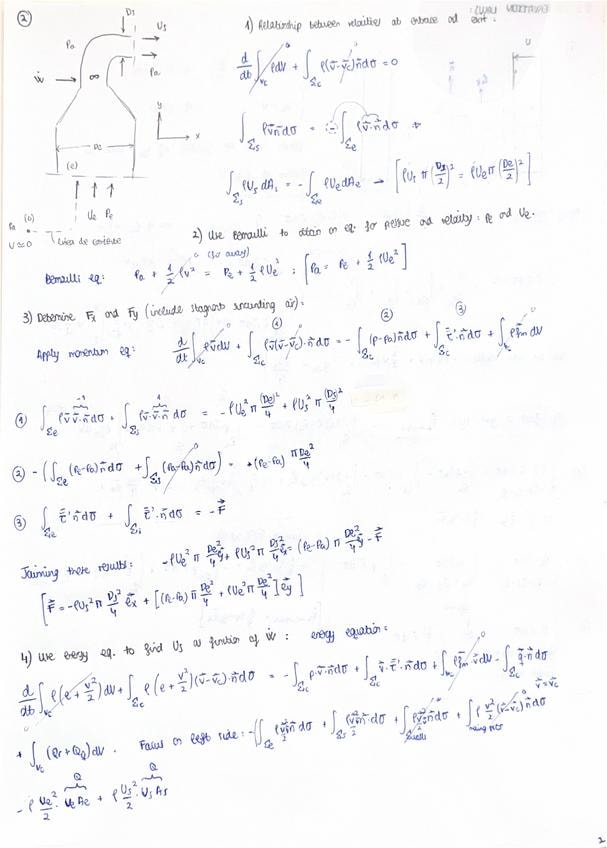 ②
Ds
Us
Pa
Pa
Ẇ
∞
y
x
De
(e)
Ue Pe
Pa (0)
U≈0
Línea de corriente
1) Relationship between velocities at entrance and exit:
d/dt ∫_Vc ρdV + ∫_Σc ρ(v̄-v̄c)n̄dσ = 0
∫_Σs ρv̄n̄dσ = - ∫_Σe ρv̄·n̄dσ
∫_Σs ρUs dAs = - ∫_Σe ρUe dAe → [ρUs π (Ds/2)² = ρUe π (De/2)²]
2) Use Bernoulli to obtain an eq. for pressure and velocity: Pe and Ue.
(far away)
Bernoulli eq: Pa + 1/2 ρv² = Pe + 1/2 ρUe² ; [Pa = Pe + 1/2 ρUe²]
3) Determine Fx and Fy (include stagnants surrounding air):
Apply momentum eq: d/dt ∫_Vc ρv̄dV + ∫_Σc ρv̄(v̄-v̄c)·n̄dσ = - ∫_Σc (p-Pa)n̄dσ + ∫_Σc τ̄'·n̄dσ + ∫_Vc ρf̄m dV
① ∫_Σe ρv̄ v̄·n̄dσ + ∫_Σs ρv̄ v̄·n̄ dσ = -ρUe² π (De)²/4 + ρUs² π (Ds)²/4
② - (∫_Σe (Pe-Pa)n̄dσ + ∫_Σs (Pa-Pa)n̄dσ) = +(Pe-Pa) πDe²/4
③ ∫_Σe τ̄'·n̄dσ + ∫_Σs τ̄'·n̄dσ = -F̄
Joining these results: -ρUe² π De²/4 ēy + ρUs² π Ds²/4 ēx = (Pe-Pa) π De²/4 ēy - F̄
[F̄ = -ρUs² π Ds²/4 ēx + [(Pe-Pa) π De²/4 + ρUe² π De²/4] ēy]
4) Use energy eq. to find Us as function of Ẇ : energy equation:
d/dt ∫_Vc ρ(e + v²/2)dV + ∫_Σc ρ(e + v²/2)(v̄-v̄c)·n̄dσ = - ∫_Σc p·v̄·n̄dσ + ∫_Σc v̄·τ̄'·n̄dσ + ∫_Vc ρf̄m·v̄dV - ∫_Σc q̄·n̄dσ
v̄=v̄c
+ ∫_Vc (Qr+Qq)dV . Focus on left side:
- ρ Ue²/2 · Ue Ae + ρ Us²/2 · Us As
2